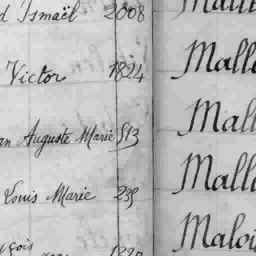 Ismaël 2008
Victor 1824
Auguste Marie 513
Louis Marie
Mall
Mall
Mall
Mall
Malo